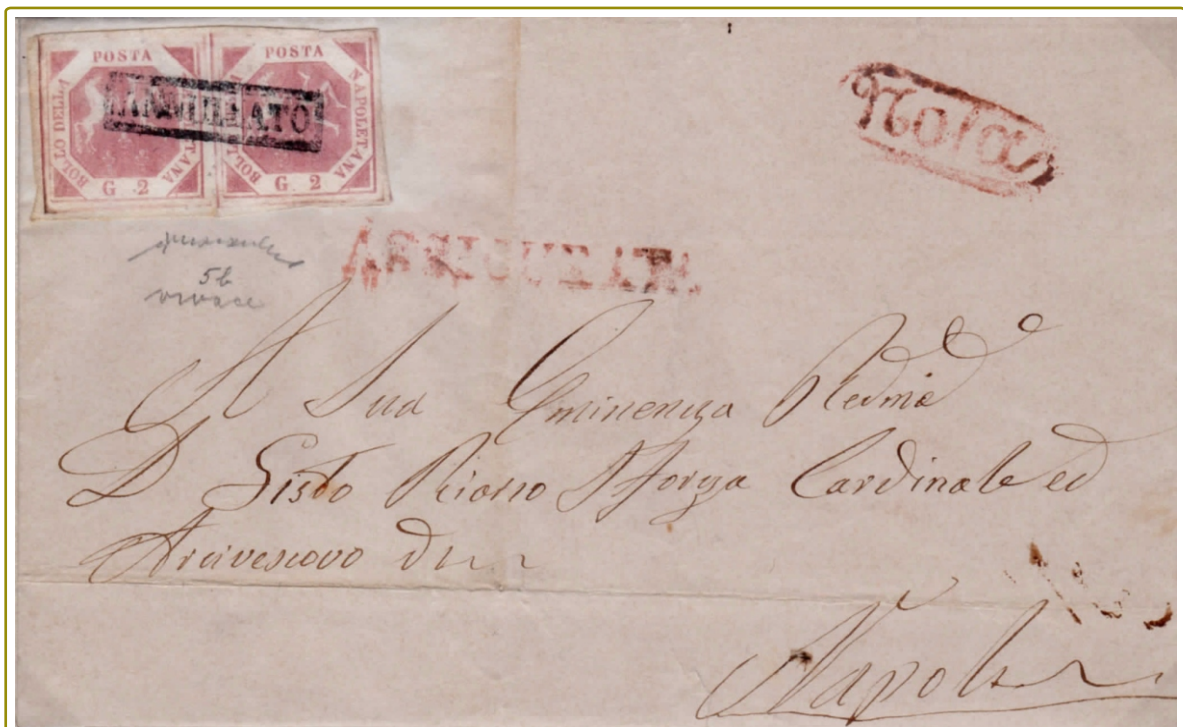 POSTA POSTA
BOLLO DELLA NAPOLETANA BOLLO NAPOLETANA
G. 2 G. 2
ANNULLATO
Nola
ASSICURATA
5b
vivace
A Sua Eminenza Redma
D Sisto Riario Sforza Cardinale ed
Arcivescovo di
Napoli